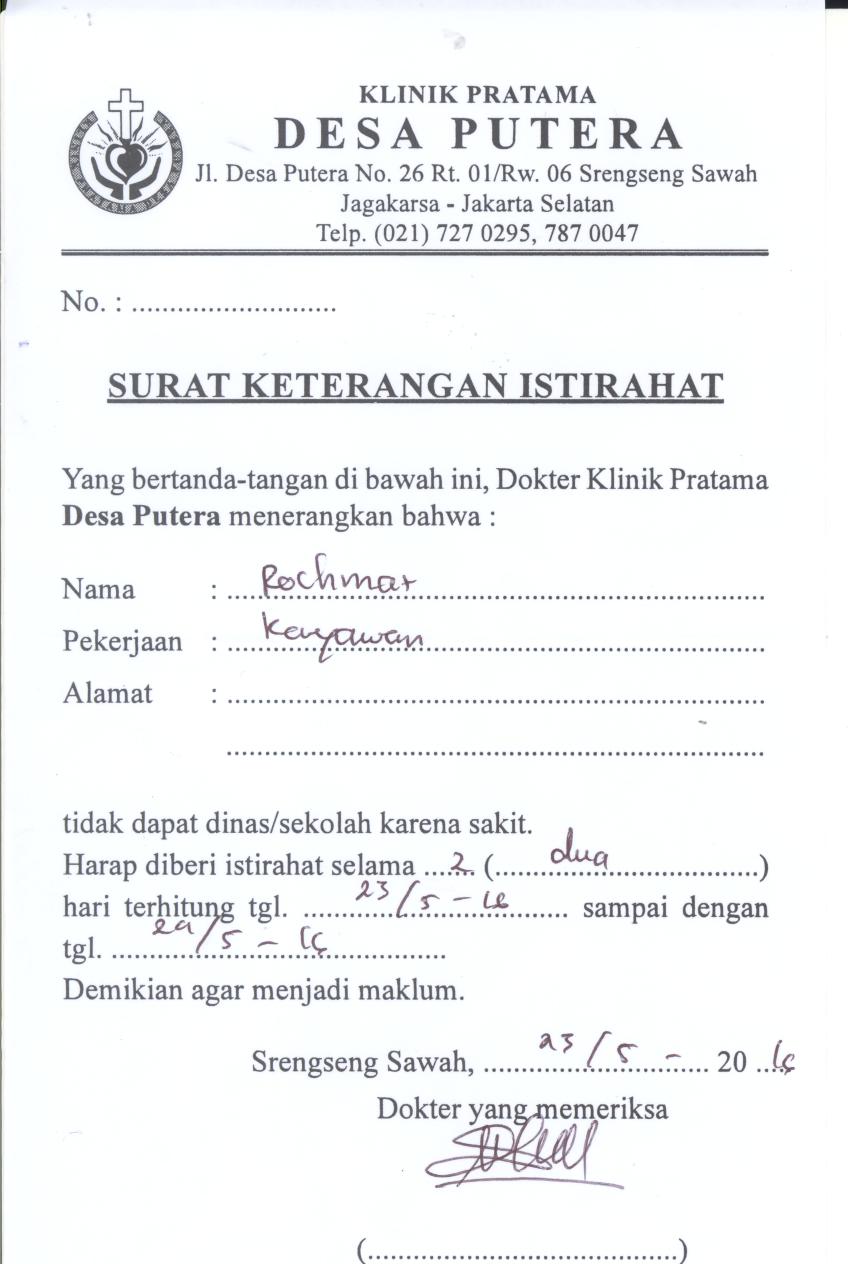 KLINIK PRATAMA
DESA PUTERA
Jl. Desa Putera No. 26 Rt. 01/Rw. 06 Srengseng Sawah
Jagakarsa - Jakarta Selatan
Telp. (021) 727 0295, 787 0047
No. : ...........................
SURAT KETERANGAN ISTIRAHAT
Yang bertanda-tangan di bawah ini, Dokter Klinik Pratama
Desa Putera menerangkan bahwa :
Nama : Rochmat
Pekerjaan : Karyawan
Alamat :
tidak dapat dinas/sekolah karena sakit.
Harap diberi istirahat selama 2 (dua)
hari terhitung tgl. 23/5 - sampai dengan
tgl. /5 -
Demikian agar menjadi maklum.
Srengseng Sawah, 23/5 - 20
Dokter yang memeriksa
(........................................)